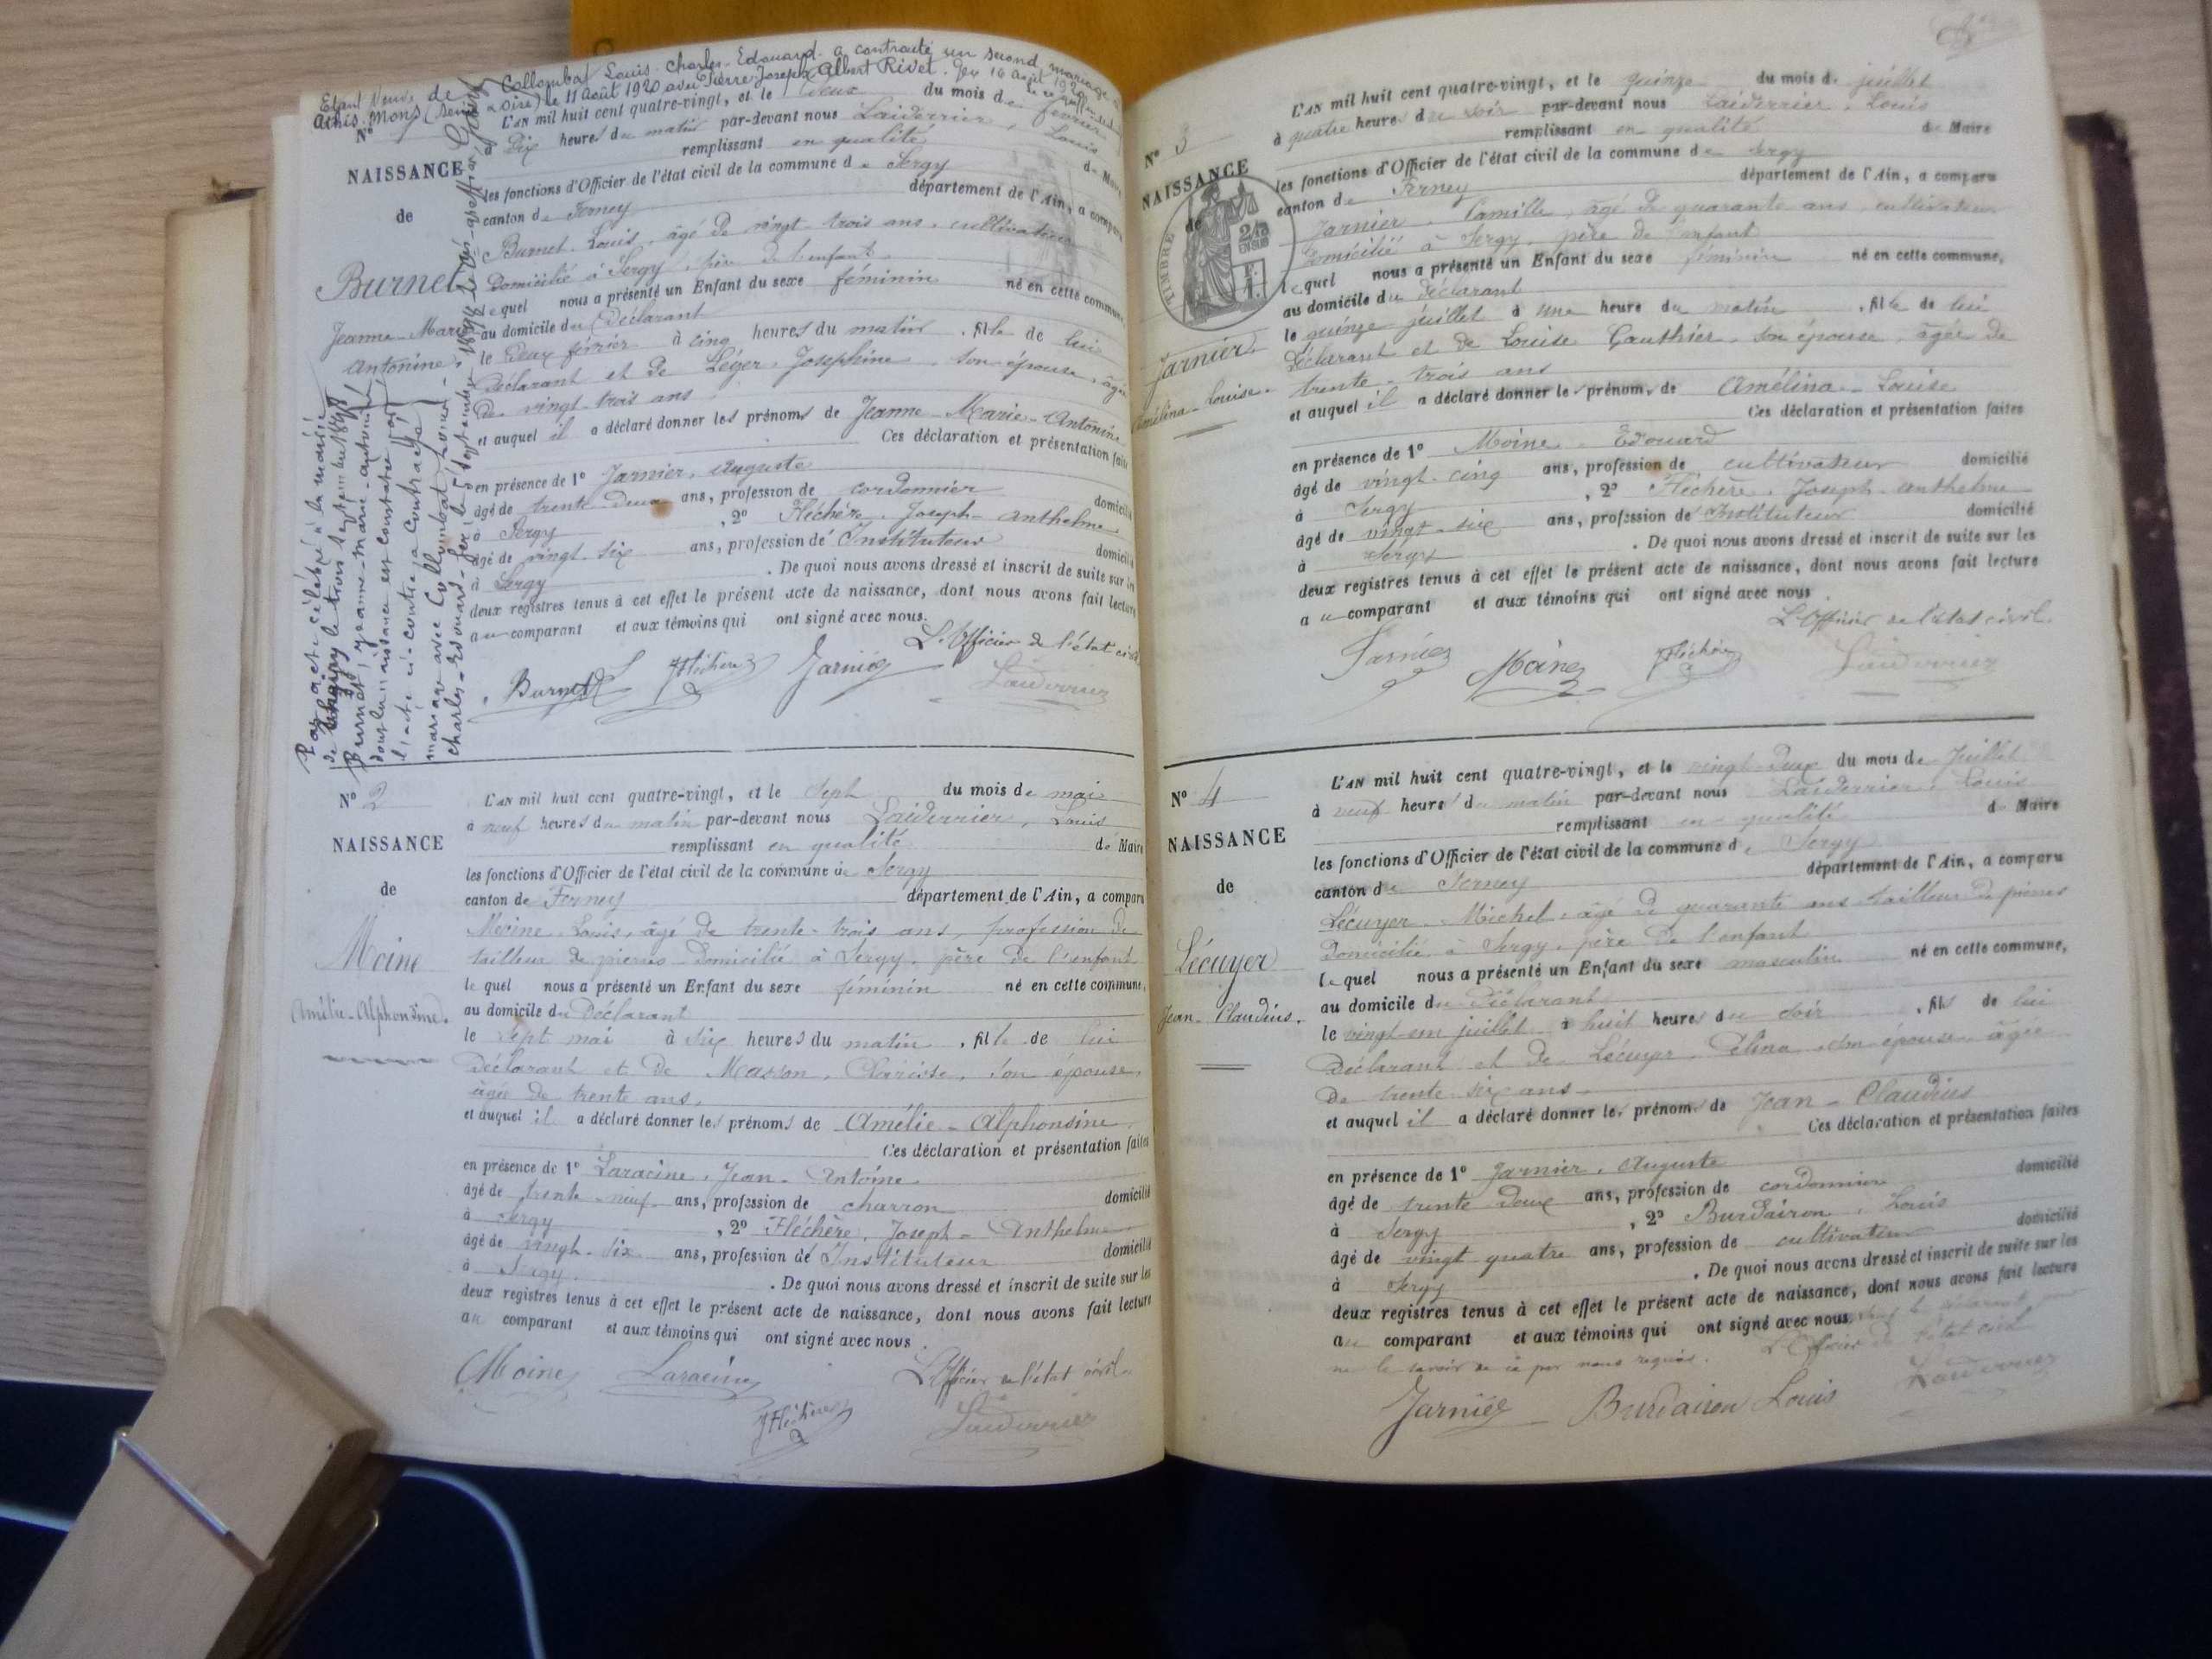 Etant veuve de Collombat Louis-Charles-Edouard a contracté un second mariage à
Athis-Mons (Seine & Oise) le 11 Août 1920 avec Pierre-Joseph Albert Rivet. Gex 16 août 1920
Nº 1
NAISSANCE
de
Burnet
Jeanne-Marie
Antonine.
Par acte célébré à la mairie
de le trois septembre 1898
Burnet, Jeanne-Marie-Antonine
dont la naissance est constatée par
l'acte ci-contre a contracté
mariage avec Collombat Louis-
Charles-Edouard. Gex le 5 septembre 1898 le
L'AN mil huit cent quatre-vingt, et le deux du mois de février
à Dix heures du matin par-devant nous Laiderrier, Louis
remplissant en qualité de Maire
les fonctions d'Officier de l'état civil de la commune de Sergy
canton de Ferney département de l'Ain, a comparu
Burnet Louis, âgé de vingt-trois ans, cultivateur
Domicilié à Sergy, père de l'enfant
lequel nous a présenté un Enfant du sexe féminin né en cette commune,
au domicile du Déclarant
le Deux février à cinq heures du matin, fille de lui
Déclarant et de Léger, Josephine, son épouse, âgée
de vingt-trois ans
et auquel il a déclaré donner les prénoms de Jeanne-Marie-Antonine
Ces déclaration et présentation faites
en présence de 1º Jarnier, Auguste
âgé de trente-deux ans, profession de cordonnier domicilié
à Sergy, 2º Fléchère, Joseph-Anthelme
âgé de vingt-six ans, profession de Instituteur domicilié
à Sergy. De quoi nous avons dressé et inscrit de suite sur les
deux registres tenus à cet effet le présent acte de naissance, dont nous avons fait lecture
au comparant et aux témoins qui ont signé avec nous.
L'Officier de l'état civil
Burnet JFléchère Jarnier Laiderrier
Nº 2
NAISSANCE
de
Moine
Amélie-Alphonsine.
L'AN mil huit cent quatre-vingt, et le Sept du mois de mai
à neuf heures du matin par-devant nous Laiderrier, Louis
remplissant en qualité de Maire
les fonctions d'Officier de l'état civil de la commune de Sergy
canton de Ferney département de l'Ain, a comparu
Moine Louis, âgé de trente-trois ans, profession de
tailleur de pierres Domicilié à Sergy, père de l'enfant
lequel nous a présenté un Enfant du sexe féminin né en cette commune,
au domicile du Déclarant
le sept mai à six heures du matin, fille de lui
Déclarant et de Masson, Clarisse, son épouse,
âgée de trente ans,
et auquel il a déclaré donner les prénoms de Amélie-Alphonsine
Ces déclaration et présentation faites
en présence de 1º Laracine, Jean-Antoine
âgé de trente-neuf ans, profession de charron domicilié
à Sergy, 2º Fléchère, Joseph-Anthelme
âgé de vingt-six ans, profession de Instituteur domicilié
à Sergy. De quoi nous avons dressé et inscrit de suite sur les
deux registres tenus à cet effet le présent acte de naissance, dont nous avons fait lecture
au comparant et aux témoins qui ont signé avec nous.
Moine Laracine L'Officier de l'état civil
JFléchère Laiderrier
Nº 3
NAISSANCE
de
TIMBRE
2/10 EN SUS
Jarnier.
Amélina-Louise.
L'AN mil huit cent quatre-vingt, et le quinze du mois de juillet
à quatre heures du soir par-devant nous Laiderrier, Louis
remplissant en qualité de Maire
les fonctions d'Officier de l'état civil de la commune de Sergy
canton de Ferney département de l'Ain, a comparu
Jarnier Camille, âgé de quarante ans, cultivateur
Domicilié à Sergy, père de l'enfant
lequel nous a présenté un Enfant du sexe féminin né en cette commune,
au domicile du Déclarant
le quinze juillet à une heure du matin, fille de lui
Déclarant et de Louise Gauthier, son épouse, âgée de
trente-trois ans
et auquel il a déclaré donner les prénoms de Amélina-Louise
Ces déclaration et présentation faites
en présence de 1º Moine Edouard
âgé de vingt-cinq ans, profession de cultivateur domicilié
à Sergy, 2º Fléchère, Joseph-Anthelme
âgé de vingt-six ans, profession de Instituteur domicilié
à Sergy. De quoi nous avons dressé et inscrit de suite sur les
deux registres tenus à cet effet le présent acte de naissance, dont nous avons fait lecture
au comparant et aux témoins qui ont signé avec nous.
L'Officier de l'état civil.
Jarnier Moine JFléchère Laiderrier
Nº 4
NAISSANCE
de
Lécuyer
Jean-Claudius.
L'AN mil huit cent quatre-vingt, et le vingt-deux du mois de Juillet
à neuf heures du matin par-devant nous Laiderrier, Louis
remplissant en qualité de Maire
les fonctions d'Officier de l'état civil de la commune de Sergy
canton de Ferney département de l'Ain, a comparu
Lécuyer Michel, âgé de quarante ans tailleur de pierres
Domicilié à Sergy, père de l'enfant
lequel nous a présenté un Enfant du sexe masculin né en cette commune,
au domicile du Déclarant
le vingt-un juillet à huit heures du soir, fils de lui
Déclarant et de Lécuyer Célina son épouse âgée
de trente-six ans
et auquel il a déclaré donner les prénoms de Jean-Claudius
Ces déclaration et présentation faites
en présence de 1º Jarnier, Auguste
âgé de trente deux ans, profession de cordonnier domicilié
à Sergy, 2º Burdairon, Louis
âgé de vingt quatre ans, profession de cultivateur domicilié
à Sergy. De quoi nous avons dressé et inscrit de suite sur les
deux registres tenus à cet effet le présent acte de naissance, dont nous avons fait lecture
au comparant et aux témoins qui ont signé avec nous, le déclarant pour
ne le savoir de ce par nous requis. L'Officier de l'état civil
Jarnier Burdairon Louis Laiderrier